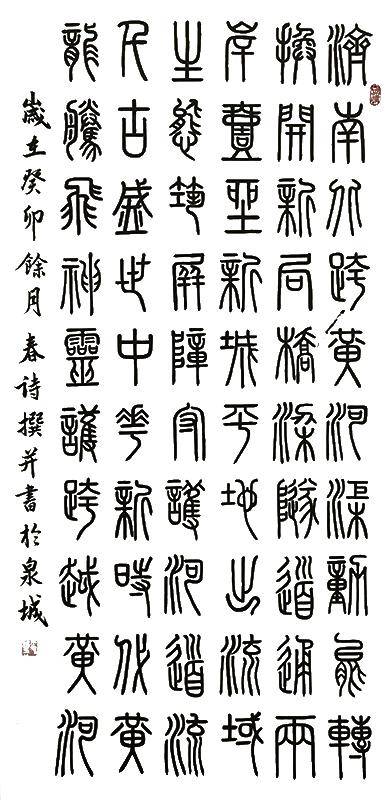 濟南北跨黃河渠動能轉
換開新局橋梁隧道通兩
岸聖新城平地出流域
生態築屏障守護河道流
古盛世中華新時代黃
龍騰飛神靈護跨越黃河
歲在癸卯餘月春詩撰并書於泉城